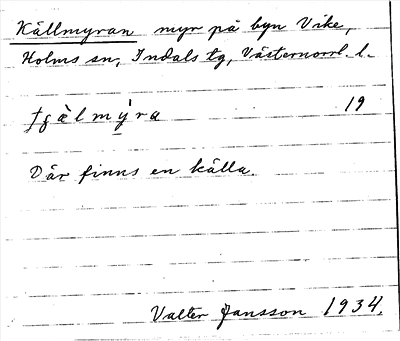 Källmyran myr på byn Vike,
Holms sn, Indals tg, Västernorrl. l.
19
Där finns en källa.
Valter Jansson 1934.